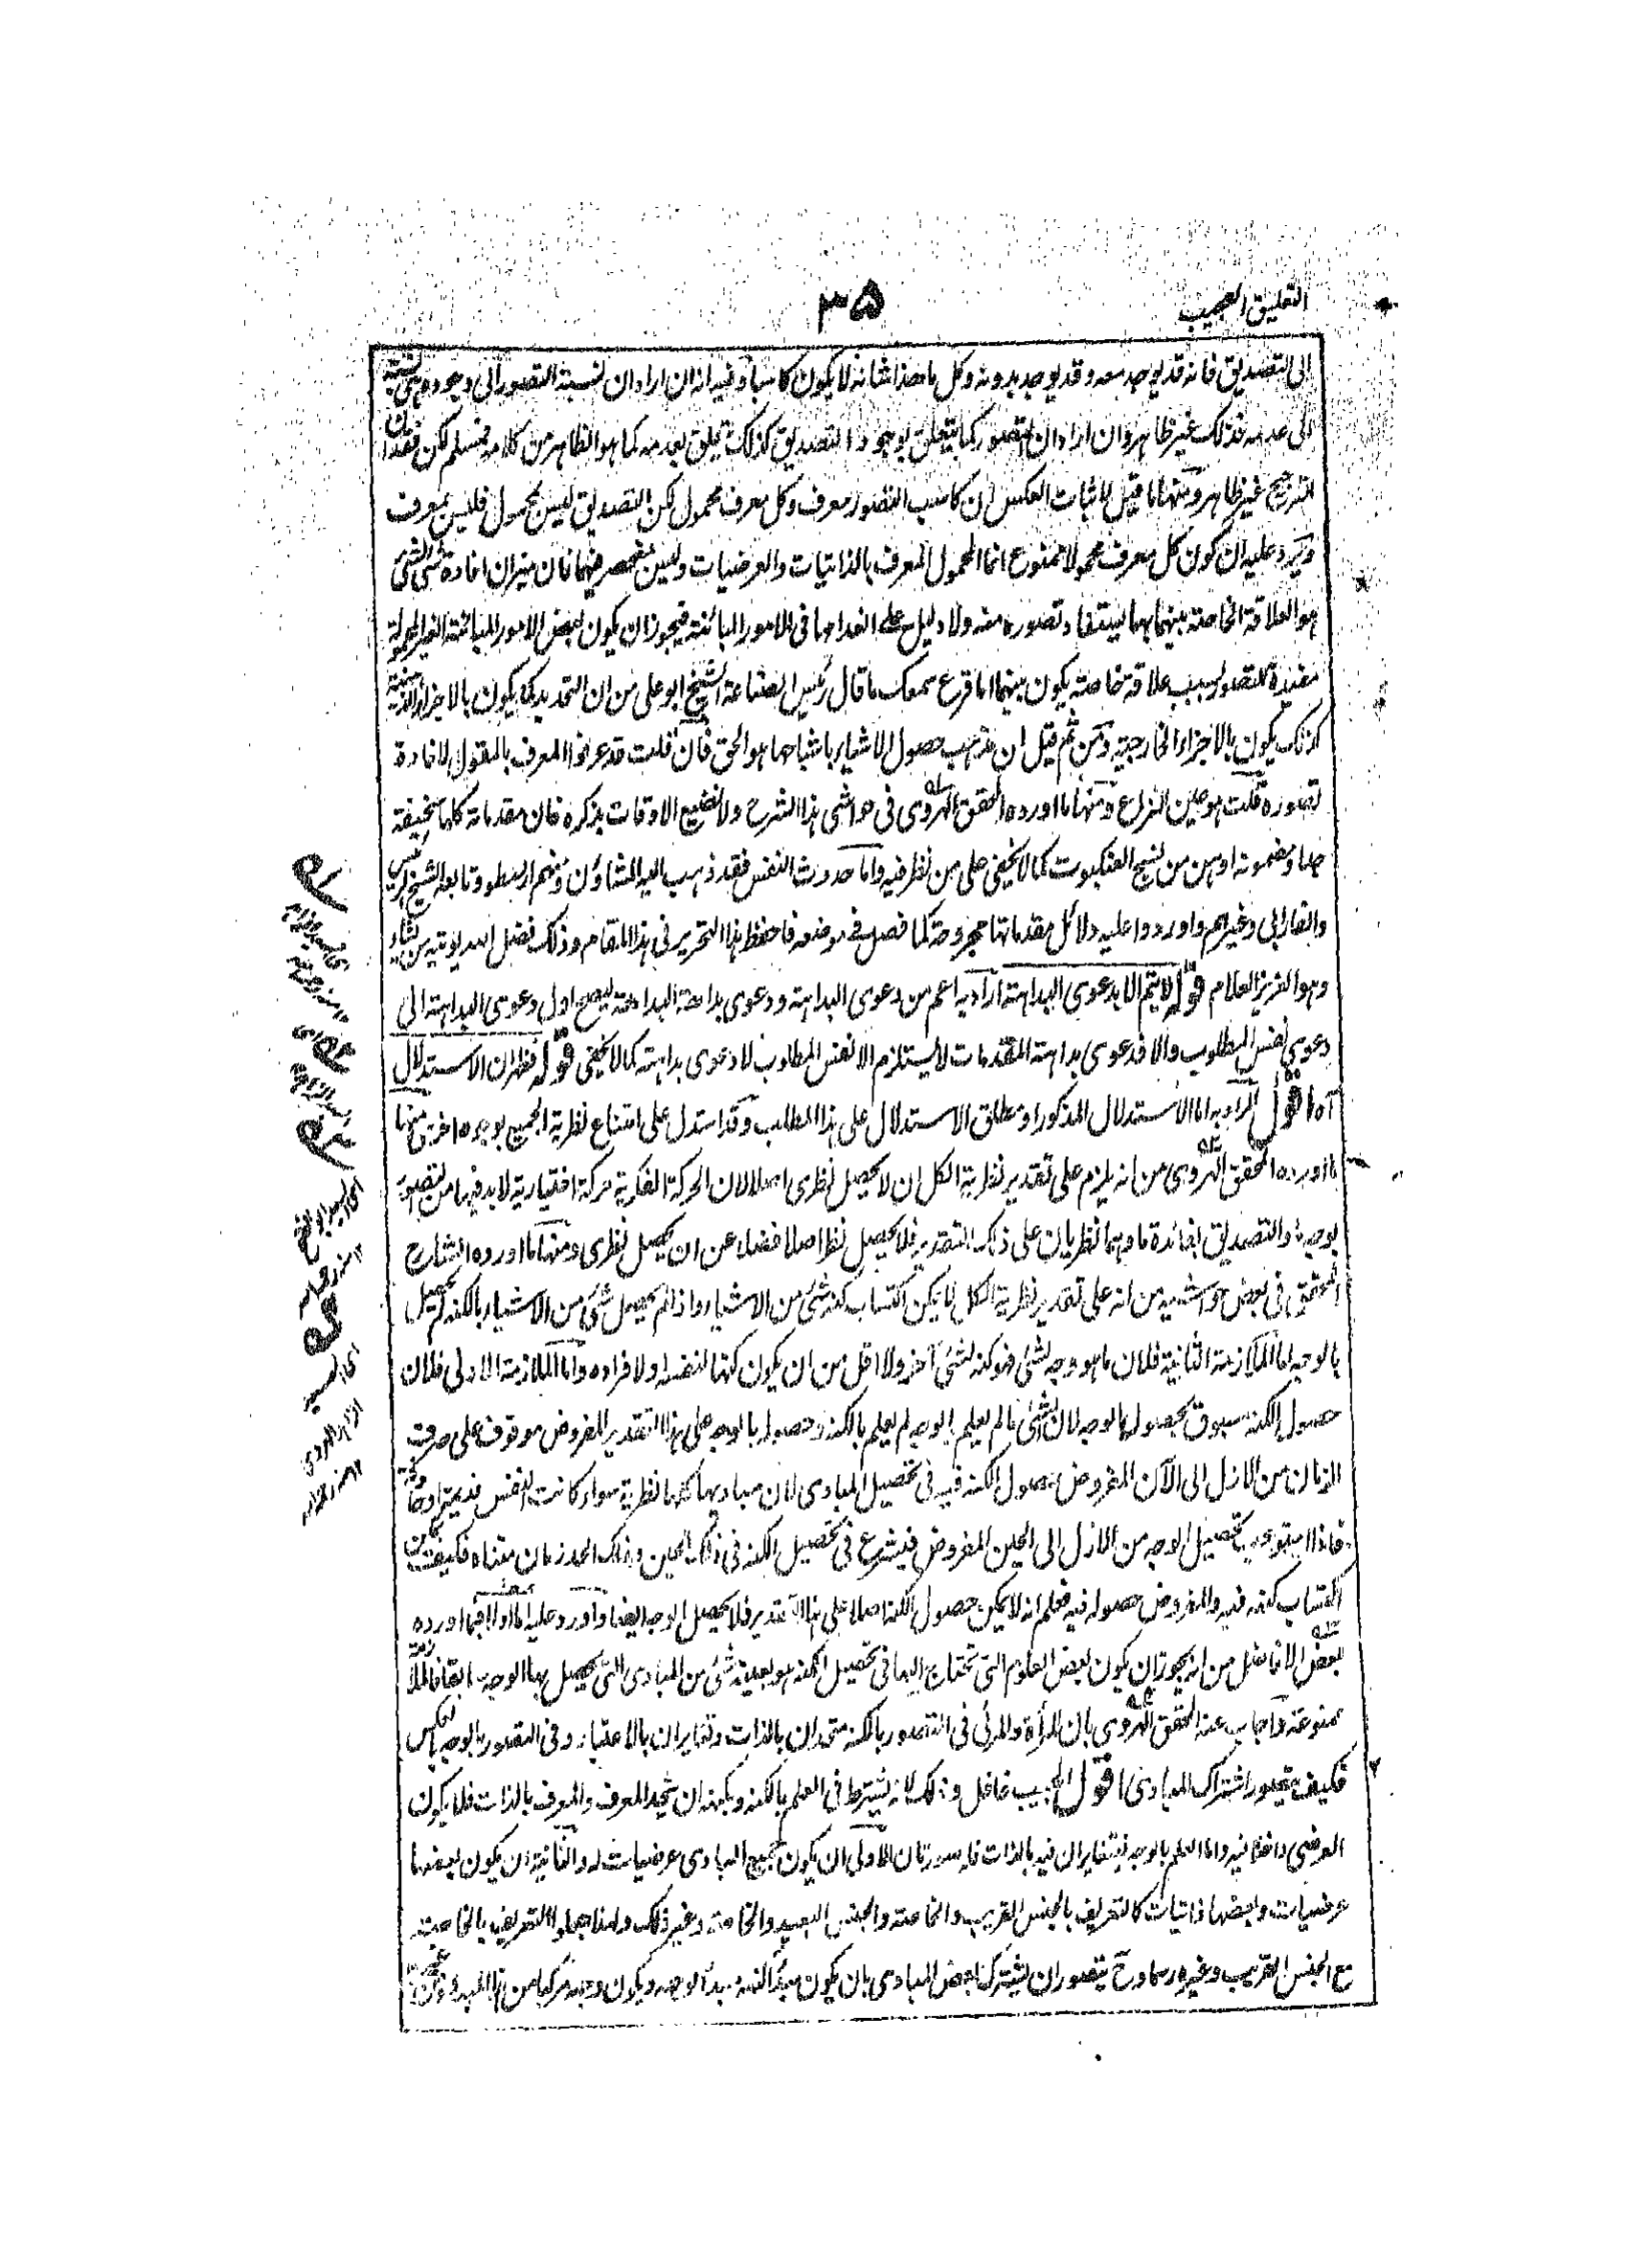 التعليق العجيب
٣٥
الى التصديق فانه قد يوجد معه وقد يوجد بدونه وكل ما هذا شانه لا يكون كاسبا وفيه انه ان اراد ان نسبة التصور الى وجوده هى نسبته
الى عدمه فذلك غير ظاهر وان اراد ان التصور كما يتعلق بوجود التصديق كذلك يتعلق بعدمه كما هو الظاهر من كلامه فمسلم لكن فقدان
الترجيح غير ظاهر ومنها ما قيل لاثبات العكس ان كاسب التصور معرف وكل معرف محمول لكن التصديق ليس بمحمول فليس بمعرف
ويرد عليه ان كون كل معرف محمولا ممنوع انما المحمول المعرف بالذاتيات والعرضيات وليس بمنحصر فيهما فان ميزان افادة شئ لشئ
هو العلاقة الخاصة بينهما بها يستفاد تصوره منه ولا دليل على انعدامها فى الامور المبائنة فيجوز ان يكون بعض الامور المبائنة الغير المحمولة
مفيدة للتصور بسبب علاقة خاصة يكون بينهما اما قرع سمعك ما قال رئيس الصناعة الشيخ ابو على من ان التحديد كما يكون بالاجزاء الذهنية
كذلك يكون بالاجزاء الخارجية ومن ثم قيل ان مذهب حصول الاشياء باشباحها هو الحق فان قلت قد عرفوا المعرف بالمقول لافادة
تصوره قلت هو عين النزاع ومنها ما اورده المحقق الهروى فى حواشى هذا الشرح ولا نضيع الاوقات بذكره فان مقدماته كلها سخيفة
جدا ومضمونه اوهن من نسج العنكبوت كما لا يخفى على من نظر فيه واما حدوث النفس فقد ذهب اليه المشاؤن ومنهم ارسطو وتابعه الشيخ الرئيس
والفارابى وغيرهم واوردوا عليه دلائل مقدماتها مجروحة كما فصل فى موضعه فاحفظ هذا التحرير فى هذا المقام وذلك فضل الله يؤتيه من يشاء
وهو العزيز العلام قوله لا يتم الا بدعوى البداهة اراد به اعم من دعوى البداهة ودعوى بداهة البداهة ليصح اول دعوى البداهة الى
دعوى نفس المطلوب والا فدعوى بداهة المقدمات لا يستلزم الا نفس المطلوب لا دعوى بداهته كما لا يخفى قوله فظهر ان الاستدلال
آه اقول المراد به اما الاستدلال المذكور او مطلق الاستدلال على هذا المطلب وقد استدل على امتناع نظرية الجميع بوجوه اخرى منها
ما اورده المحقق الهروى من انه يلزم على تقدير نظرية الكل ان لا يحصل نظرى اصلا لان الحركة الفكرية حركة اختيارية لا بد فيها من التصور
بوجه ما والتصديق بفائدة ما وهما نظريان على ذلك التقدير فلا يحصل نظر اصلا فضلا عن ان يحصل نظرى ومنها ما اورده الشارح
المحقق فى بعض حواشيه من انه على تقدير نظرية الكل لا يمكن اكتساب كنه شئ من الاشياء واذا لم يحصل شئ من الاشياء بالكنه لم يحصل
بالوجه اما الملازمة الثانية فلان ما هو وجه لشئ فهو كنه لشئ آخر ولا اقل من ان يكون كنها لنفسه او لافراده واما الملازمة الاولى فلان
حصول الكنه مسبوق بحصوله بالوجه لان الشئ ما لم يعلم بالوجه لم يعلم بالكنه وحصوله بالوجه على هذا التقدير المفروض موقوف على صرف
الزمان من الازل الى الآن المفروض حصول الكنه فيه فى تحصيل المبادى لان مباديها كلها نظرية سواء كانت النفس قديمة او حادثة
فاذا استوعب تحصيل الوجه من الازل الى الحين المفروض فيشرع فى تحصيل الكنه فى ذلك الحين وذلك الحد زمان متناه فكيف يمكن
اكتساب كنهه فيه والمفروض حصوله فيه فعلم انه لا يمكن حصول الكنه اصلا على هذا التقدير فلا يحصل الوجه ايضا واورد عليه اما اولا فبما اورده
بعض الافاضل من انه يجوز ان يكون بعض العلوم التى تحتاج اليها فى تحصيل الكنه هو بعينه شئ من المبادى التى يحصل بها الوجه سابقا فالملازمة
ممنوعة واجاب عنه المحقق الهروى بان المرأة والمرئى فى التصور بالكنه متحدان بالذات ومتغايران بالاعتبار وفى التصور بالوجه بالعكس
فكيف يتصور اشتراك المبادى اقول المجيب غافل وذلك لانه يشترط فى العلم بالكنه وبكنهه ان يتحد المعرف والمعرف بالذات فلا يكون
العرضى داخلا فيه واما العلم بالوجه فيتغايران فيه بالذات فله صورتان الاولى ان يكون جميع المبادى عرضيات له والثانية ان يكون بعضها
عرضيات وبعضها ذاتيات كالتعريف بالجنس القريب والخاصة والجنس البعيد والخاصة وغير ذلك ولهذا جعلوا التعريف بالخاصة
مع الجنس القريب وغيره رسما وح يتصور ان يشترك بعض المبادى بان يكون مبدأ لكنه مبدأ لوجهه ويكون وجهه مركبا من هذا المبدأ
اى السيد
الزاهد الهروى